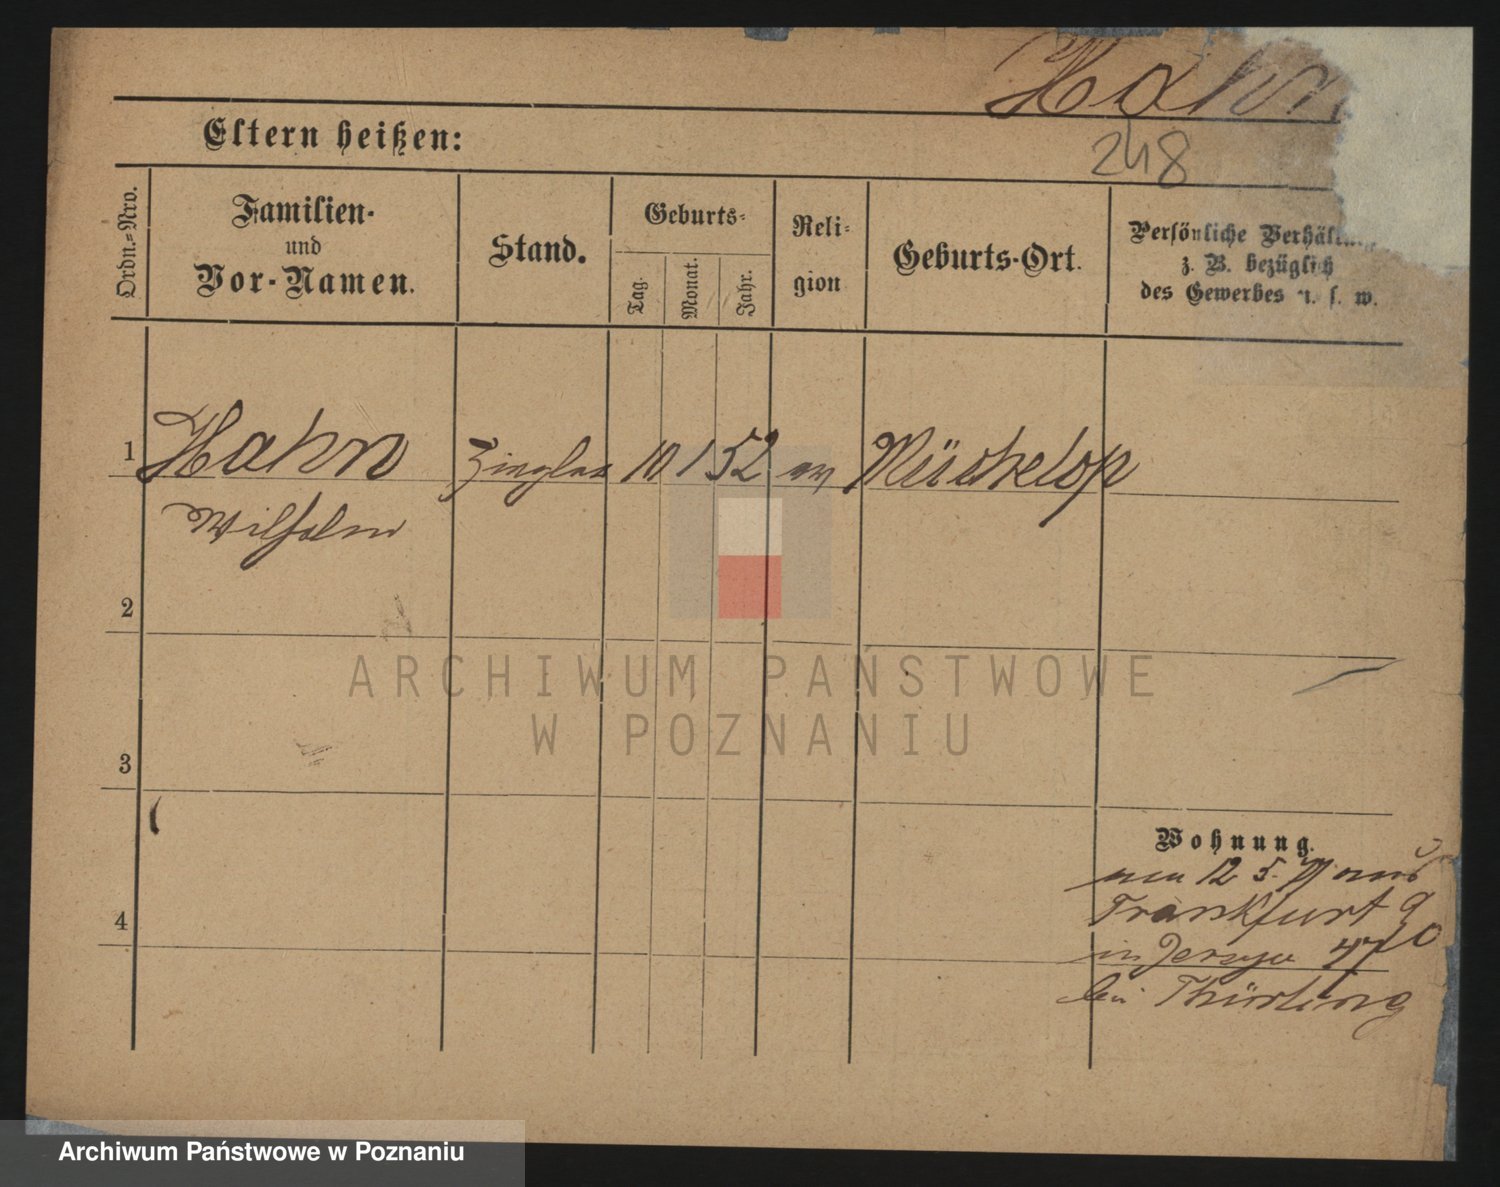 Hahn
248
Eltern heißen:
Ordn.-Nro.
Familien-
und
Vor-Namen.
Stand.
Geburts-
Tag.
Monat.
Jahr.
Reli-
gion
Geburts-Ort.
Persönliche Verhältn
z. B. bezüglich
des Gewerbes u. s. w.
1 Hahn Ziegler 10 1 52 ev
Wilhelm
2
3
4
Wohnung.
12 5. aus
Frankfurt
in
bei
ARCHIWUM PANSTWOWE
W POZNANIU
Archiwum Państwowe w Poznaniu